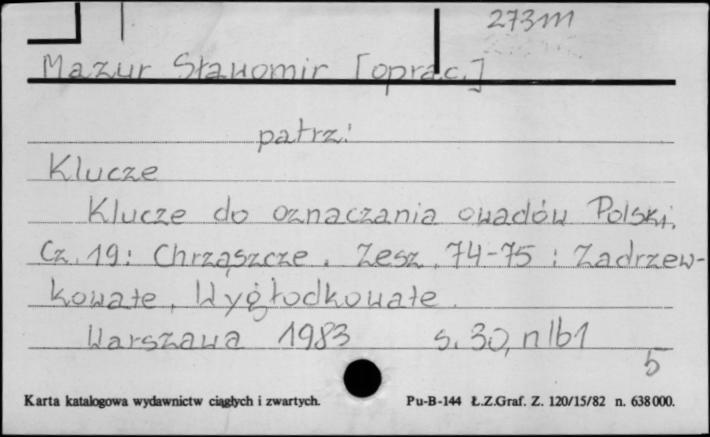 273111
Mazur Sławomir [oprac.]
patrz:
Klucze
Klucze do oznaczania owadów Polski.
Cz. 19: Chrząszcze. Zesz. 74-75: Zadrzew-
kowate, Wygłodkowate.
Warszawa 1983 s. 30, nlb1
5
Karta katalogowa wydawnictw ciągłych i zwartych. Pu-B-144 Ł.Z.Graf. Z. 120/15/82 n. 638000.